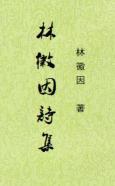 林徽因詩集
林徽因 著